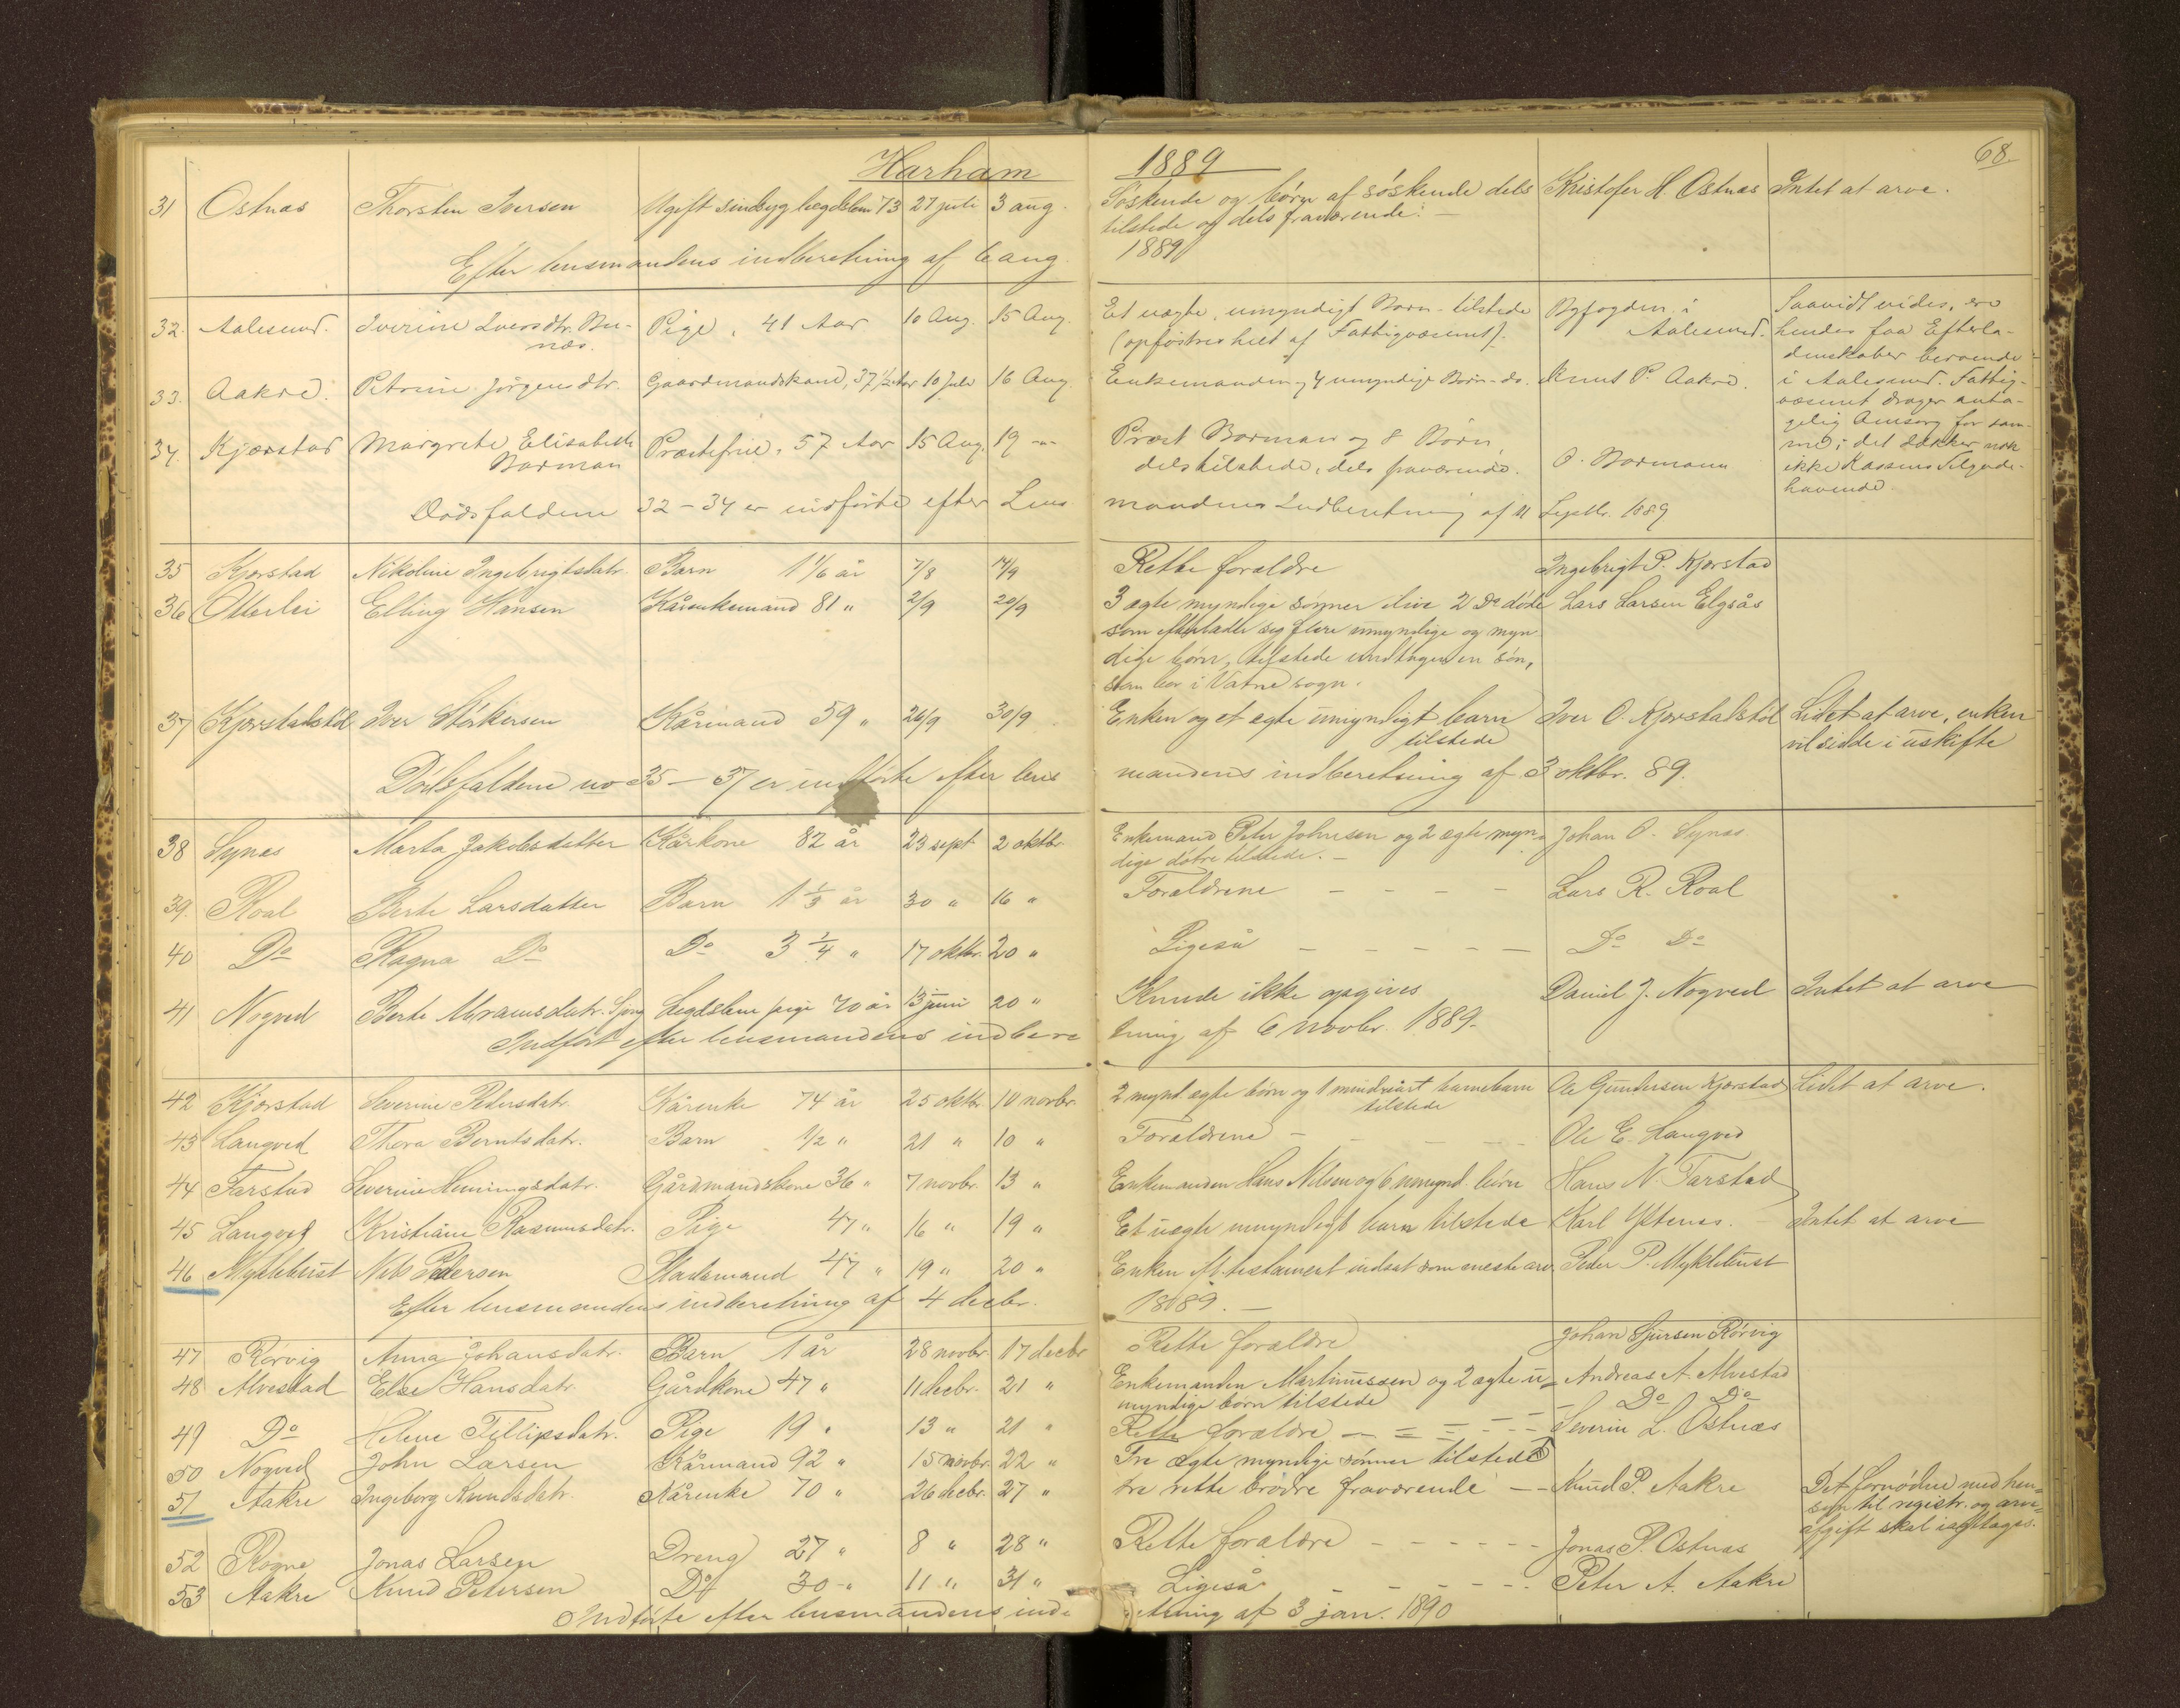 Harham 1889 68.
31 Ostnæs Thorsten Iversen Ugift sindsyg lægdslem 73 27 juli 3 aug. Søskende og børn af søskende dels Kristofer H Ostnæs Intet at arve.
tilstede og dels fraværende. —
Efter lensmandens indberetning af 6 aug 1889
32. Aalesund. Iverine Iversdtr. Pige, 41 Aar 10 Aug. 15 Aug. Et uægte, umyndigt Barn - tilstede Byfogden i Saavidt vides, ere
næs. (opfostres helt af Fattigvæsenet). Aalesund. hendes faa Efterla-
denskaber beroende
33. Aakre. Petrine Jørgensdtr. Gaardmandskone, 37 1/2 Aar 10 Juli 16 Aug. Enkemanden og 4 umyndige Børn - do. Knut P. Aakre. i Aalesund. Fattig-
væsenet drager anta-
gelig Omsorg for sam-
34. Kjærstad Margrete Elisabeth Præstefrue, 57 Aar 15 Aug. 19 -"- Præst Borman og 8 Børn, me; det dækker nok
Borman dels tilstede, dels fraværende. O. Bormann ikke Kassens Tilgode-
havende
Dødsfaldene 32 - 34 er indførte efter Lens mandens Indberetning af 11 Septbr. 1889
35 Kjørstad Nikoline Ingebrigtsdatr. Barn 1 1/6 år 7/8 14/9 Rette forældre Ingebrigt P. Kjørstad
36 Otterlei Elling Hansen Kårenkemand 81 " 2/9 20/9 3 ægte myndige sønner ilive 2 Do døde Lars Larsen Elgsås
som efterladte sig flere umyndige og myn
dige børn, tilstede undtagen en søn,
som bor i Vatne sogn.
37 Kjørstadstøl Iver Størkersen Kårmand 59 " 26/9 30/9 Enken og et ægte umyndigt barn Iver O. Kjørstadstøl Lidet at arve, enken
tilstede vil sidde i uskifte
Dødsfaldene no 35 - 37 er indførte efter lens mandens indberetning af 3 oktbr. 89.
38 Synes Marta Jakobsdatter Kårkone 82 år 23 sept 2 oktbr. Enkemand Peter Johnsen og 2 ægte myn- Johan O. Synes
dige døtre tilstede. —
39. Roal Berte Larsdatter Barn 1 1/3 år 30 " 16 " Forældrene - - - - Lars R. Roal
40 Do Ragna Do Do 3 1/4 " 17 oktbr. 20 " Ligeså - - - - - Do Do
41 Nogved Berte Abramsdatr. Lægdslem pige 70 år 13 juni 20 " Kunde ikke opgives Daniel J. Nogved Intet at arve
Indført efter lensmandens indbere tning af 6 novbr. 1889.
42 Kjørstad Severine Pedersdatr. Kårenke 74 år 25 oktbr. 10 novbr. 2 mynd. ægte børn og 1 mindreårt barnebarn Ole Gundersen Kjørstad Lidet at arve.
tilstede
43 Langved Thora Berntsdatr. Barn 1/2 " 21 " 10 " Forældrene - - - - Ole E. Langved
44 Farstad Severine Henningsdatr. Gårdmandskone 36 " 7 novbr. 13 " Enkemanden Hans Nilsen og 6 umynd. børn Hans N. Farstad
45 Langved Kristiane Rasmusdatr. Pige 47 " 16 " 19 " Et uægte umyndigt barn tilstede Karl Ystenes. - Intet at arve
46 Myklebust Nils Pedersen Pladsmand 47 " 19 " 20 " Enken testament indsat som eneste arv. Peder P. Myklebust
Efter lensmandens indberetning af 4 decbr. 1889. —
47 Rørvig Anna Johansdatr. Barn 1 år 28 novbr. 17 decbr Rette forældre Johan Sjursen Rørvig
48 Alvestad Else Hansdatr. Gårdkone 47 " 11 decbr. 21 " Enkemanden Martinussen og 2 ægte u- Andreas A. Alvestad
myndige børn tilstede Do Do
49 Do Helene Fillipsdatr. Pige 19 " 13 " 21 " Rette forældre - - - - Severin L. Ostnæs
50 Nogved John Larsen Kårmand 92 " 15 novbr. 22 " Tre ægte myndige sønner tilstede
51 Aakre Ingeborg Knudsdatr. Kårenke 70 " 26 decbr. 27 " tre rette brødre fraværende - - Knud P. Aakre Det fornødne med hen-
syn til registr. og arve-
afgift skal iagttages.
52 Rogne Jonas Larsen Dreng 27 " 8 " 28 " Rette forældre - - - - - - Jonas P. Ostnæs
53 Aakre Knud Petersen Do 30 - " 11 " 31 " Ligeså - - - - - Peter A. Aakre
Indførte efter lensmandens indb etning af 3 jan. 1890